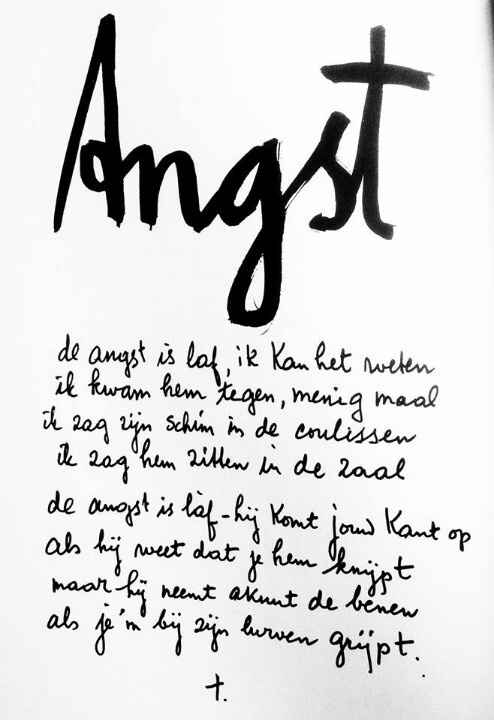 Angst
de angst is laf, ik kan het weten
ik kwam hem tegen, menig maal
ik zag zijn schim in de coulissen
ik zag hem zitten in de zaal
de angst is laf - hij komt jouw kant op
als hij weet dat je hem knijpt
maar hij neemt akuut de benen
als je 'm bij zijn lurven grijpt.
t.